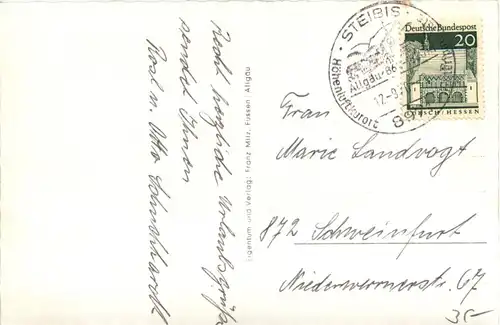 Recht herzliche Urlaubsgrüße
sendet Ihnen
Rosl u. Otto
Eigentum und Verlag: Franz Milz, Füssen, Allgäu
STEIBIS
Allgäu
Höhenluftkurort
12.9.
89
Deutsche Bundespost
20
LORSCH/HESSEN
Frau
Marie Landvogt
872 Schweinfurt
Niederwernerstr. 67
35